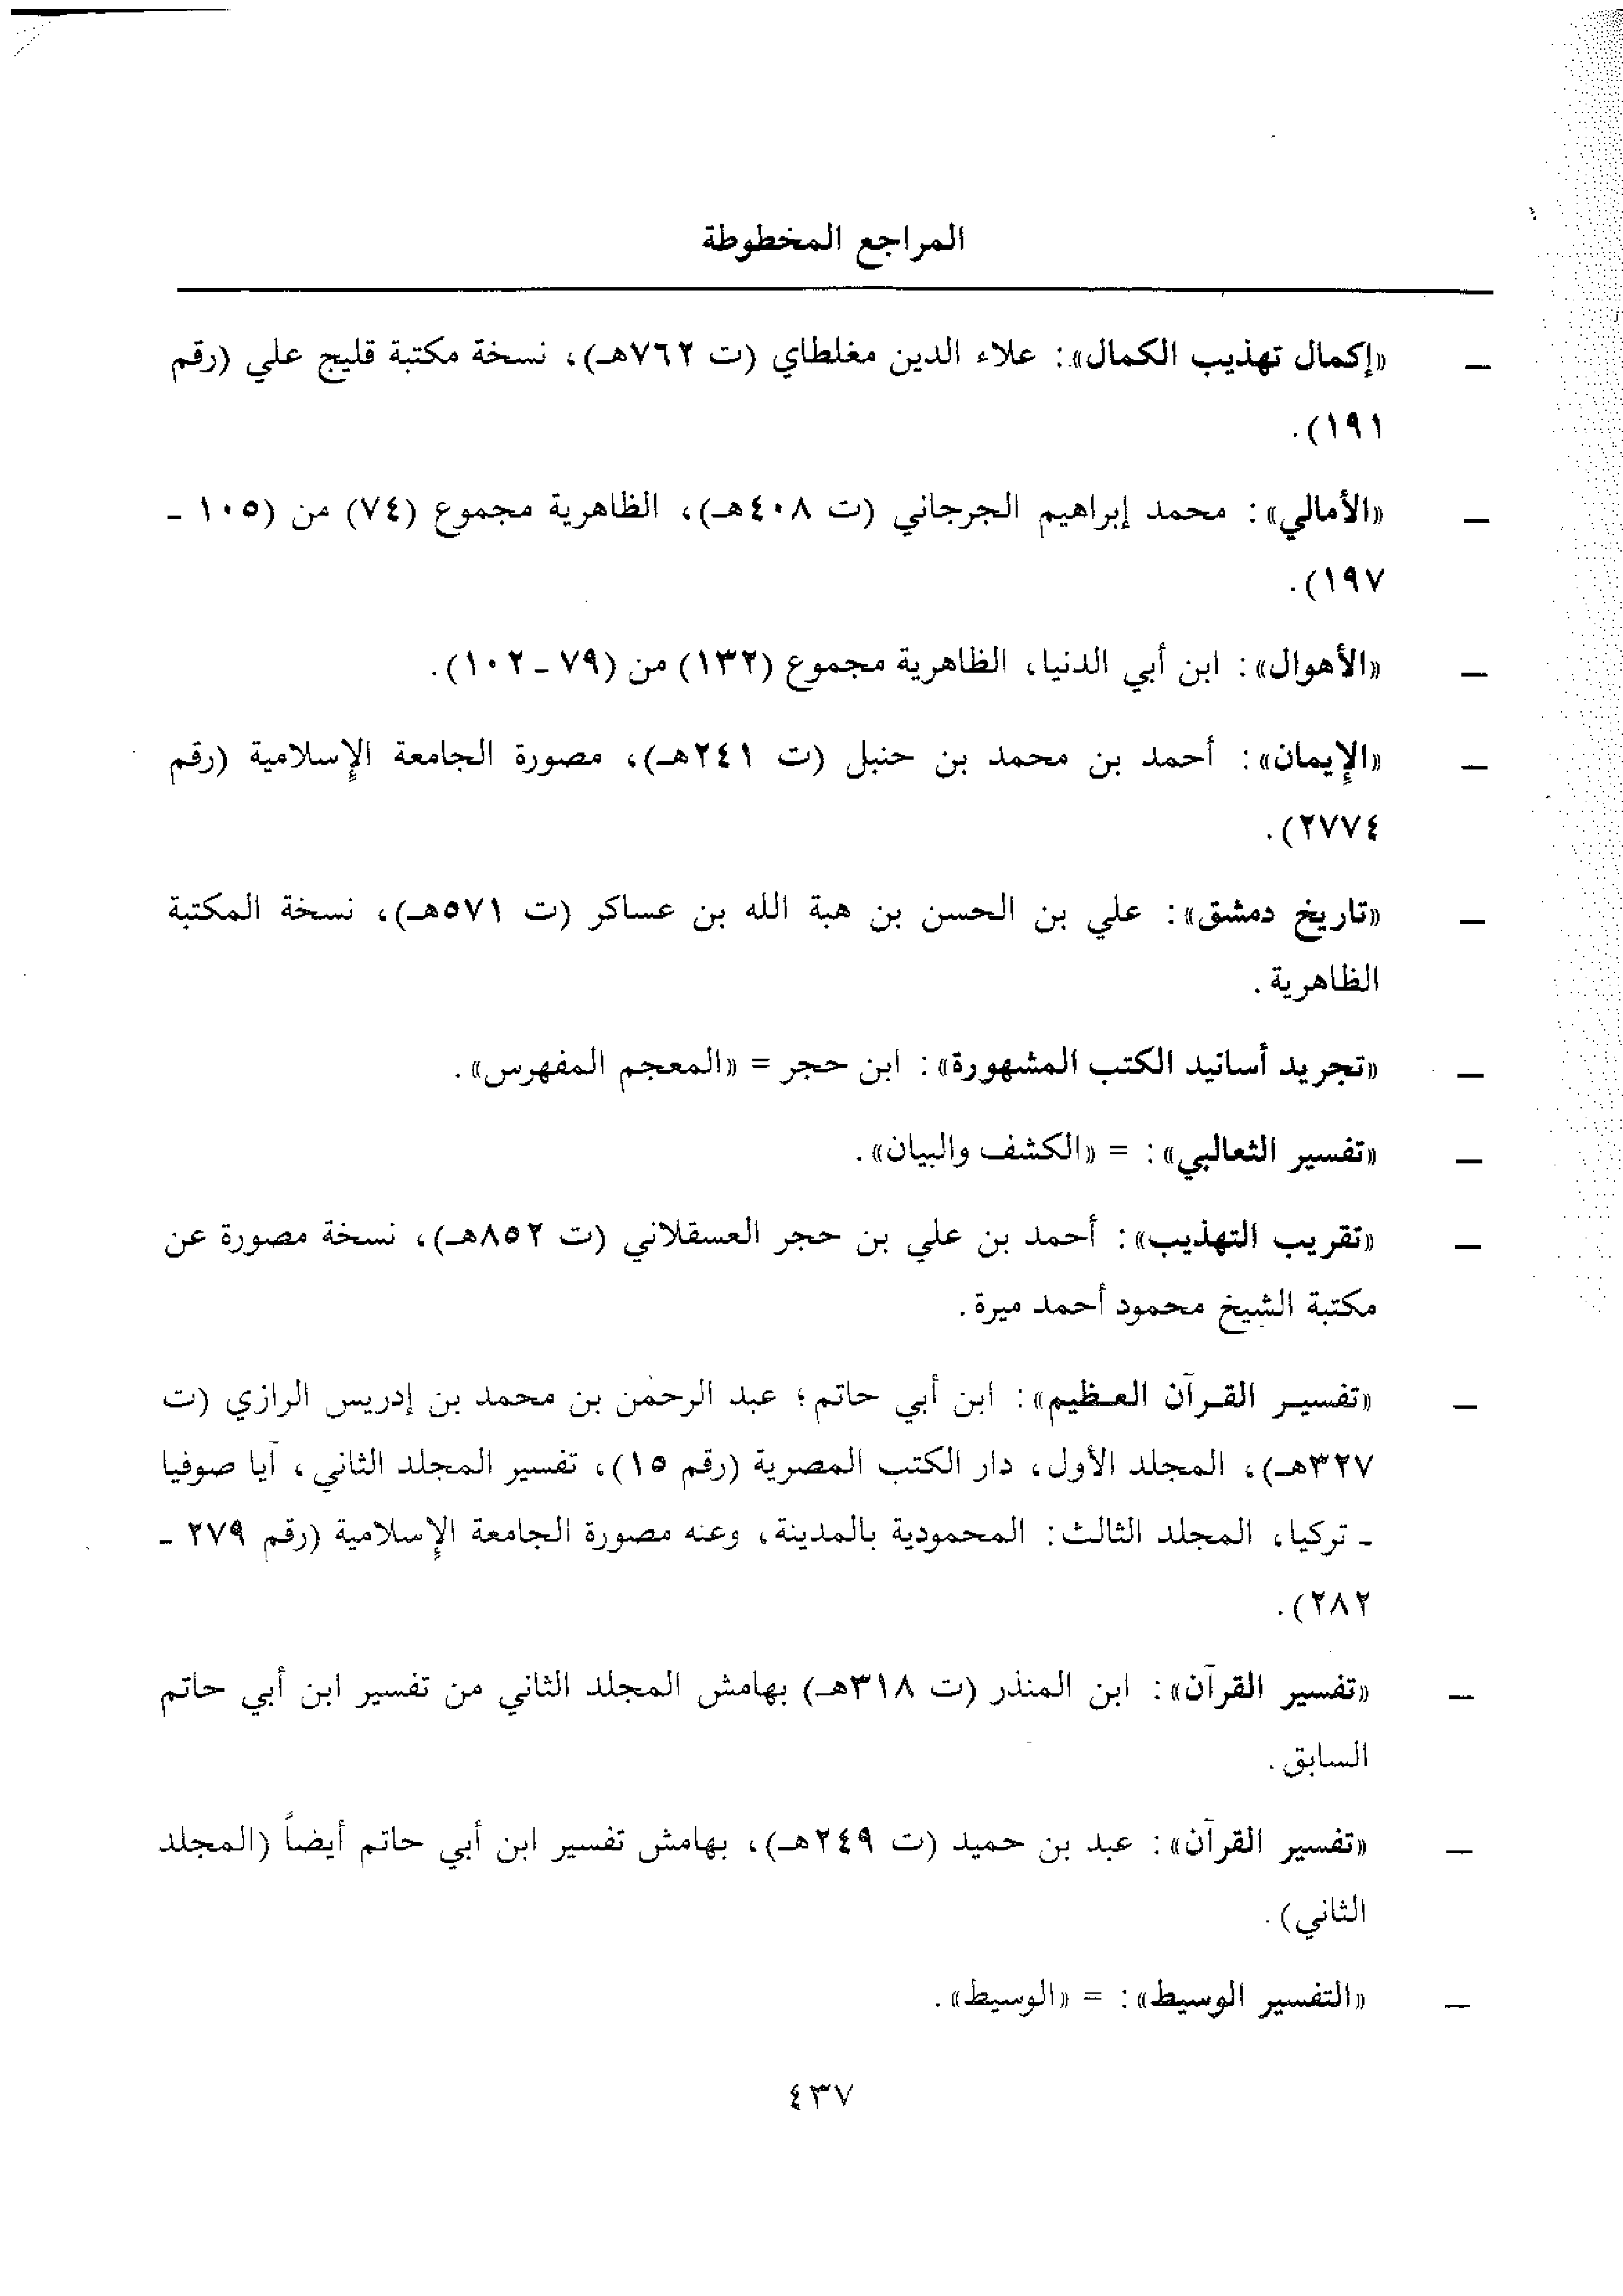 المراجع المخطوطة
ـ «إكمال تهذيب الكمال»: علاء الدين مغلطاي (ت ٧٦٢هـ)، نسخة مكتبة قليج علي (رقم
١٩١).
ـ «الأمالي»: محمد إبراهيم الجرجاني (ت ٤٠٨هـ)، الظاهرية مجموع (٧٤) من (١٠٥ ـ
١٩٧).
ـ «الأهوال»: ابن أبي الدنيا، الظاهرية مجموع (١٣٢) من (٧٩ ـ ١٠٢).
ـ «الإيمان»: أحمد بن محمد بن حنبل (ت ٢٤١هـ)، مصورة الجامعة الإسلامية (رقم
٢٧٧٤).
ـ «تاريخ دمشق»: علي بن الحسن بن هبة الله بن عساكر (ت ٥٧١هـ)، نسخة المكتبة
الظاهرية.
ـ «تجريد أسانيد الكتب المشهورة»: ابن حجر = «المعجم المفهرس».
ـ «تفسير الثعالبي»: = «الكشف والبيان».
ـ «تقريب التهذيب»: أحمد بن علي بن حجر العسقلاني (ت ٨٥٢هـ)، نسخة مصورة عن
مكتبة الشيخ محمود أحمد ميرة.
ـ «تفسير القرآن العظيم»: ابن أبي حاتم؛ عبد الرحمٰن بن محمد بن إدريس الرازي (ت
٣٢٧هـ)، المجلد الأول، دار الكتب المصرية (رقم ١٥)، تفسير المجلد الثاني، آيا صوفيا
ـ تركيا، المجلد الثالث: المحمودية بالمدينة، وعنه مصورة الجامعة الإسلامية (رقم ٢٧٩ ـ
٢٨٢).
ـ «تفسير القرآن»: ابن المنذر (ت ٣١٨هـ) بهامش المجلد الثاني من تفسير ابن أبي حاتم
السابق.
ـ «تفسير القرآن»: عبد بن حميد (ت ٢٤٩هـ)، بهامش تفسير ابن أبي حاتم أيضاً (المجلد
الثاني).
ـ «التفسير الوسيط»: = «الوسيط».
٤٣٧